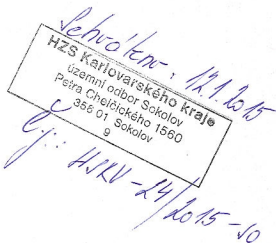 Schváleno: 12.1.2015
HZS Karlovarského kraje
územní odbor Sokolov
Petra Chelčického 1560
356 01 Sokolov
9
čj.: HSKV-24/2015-SO